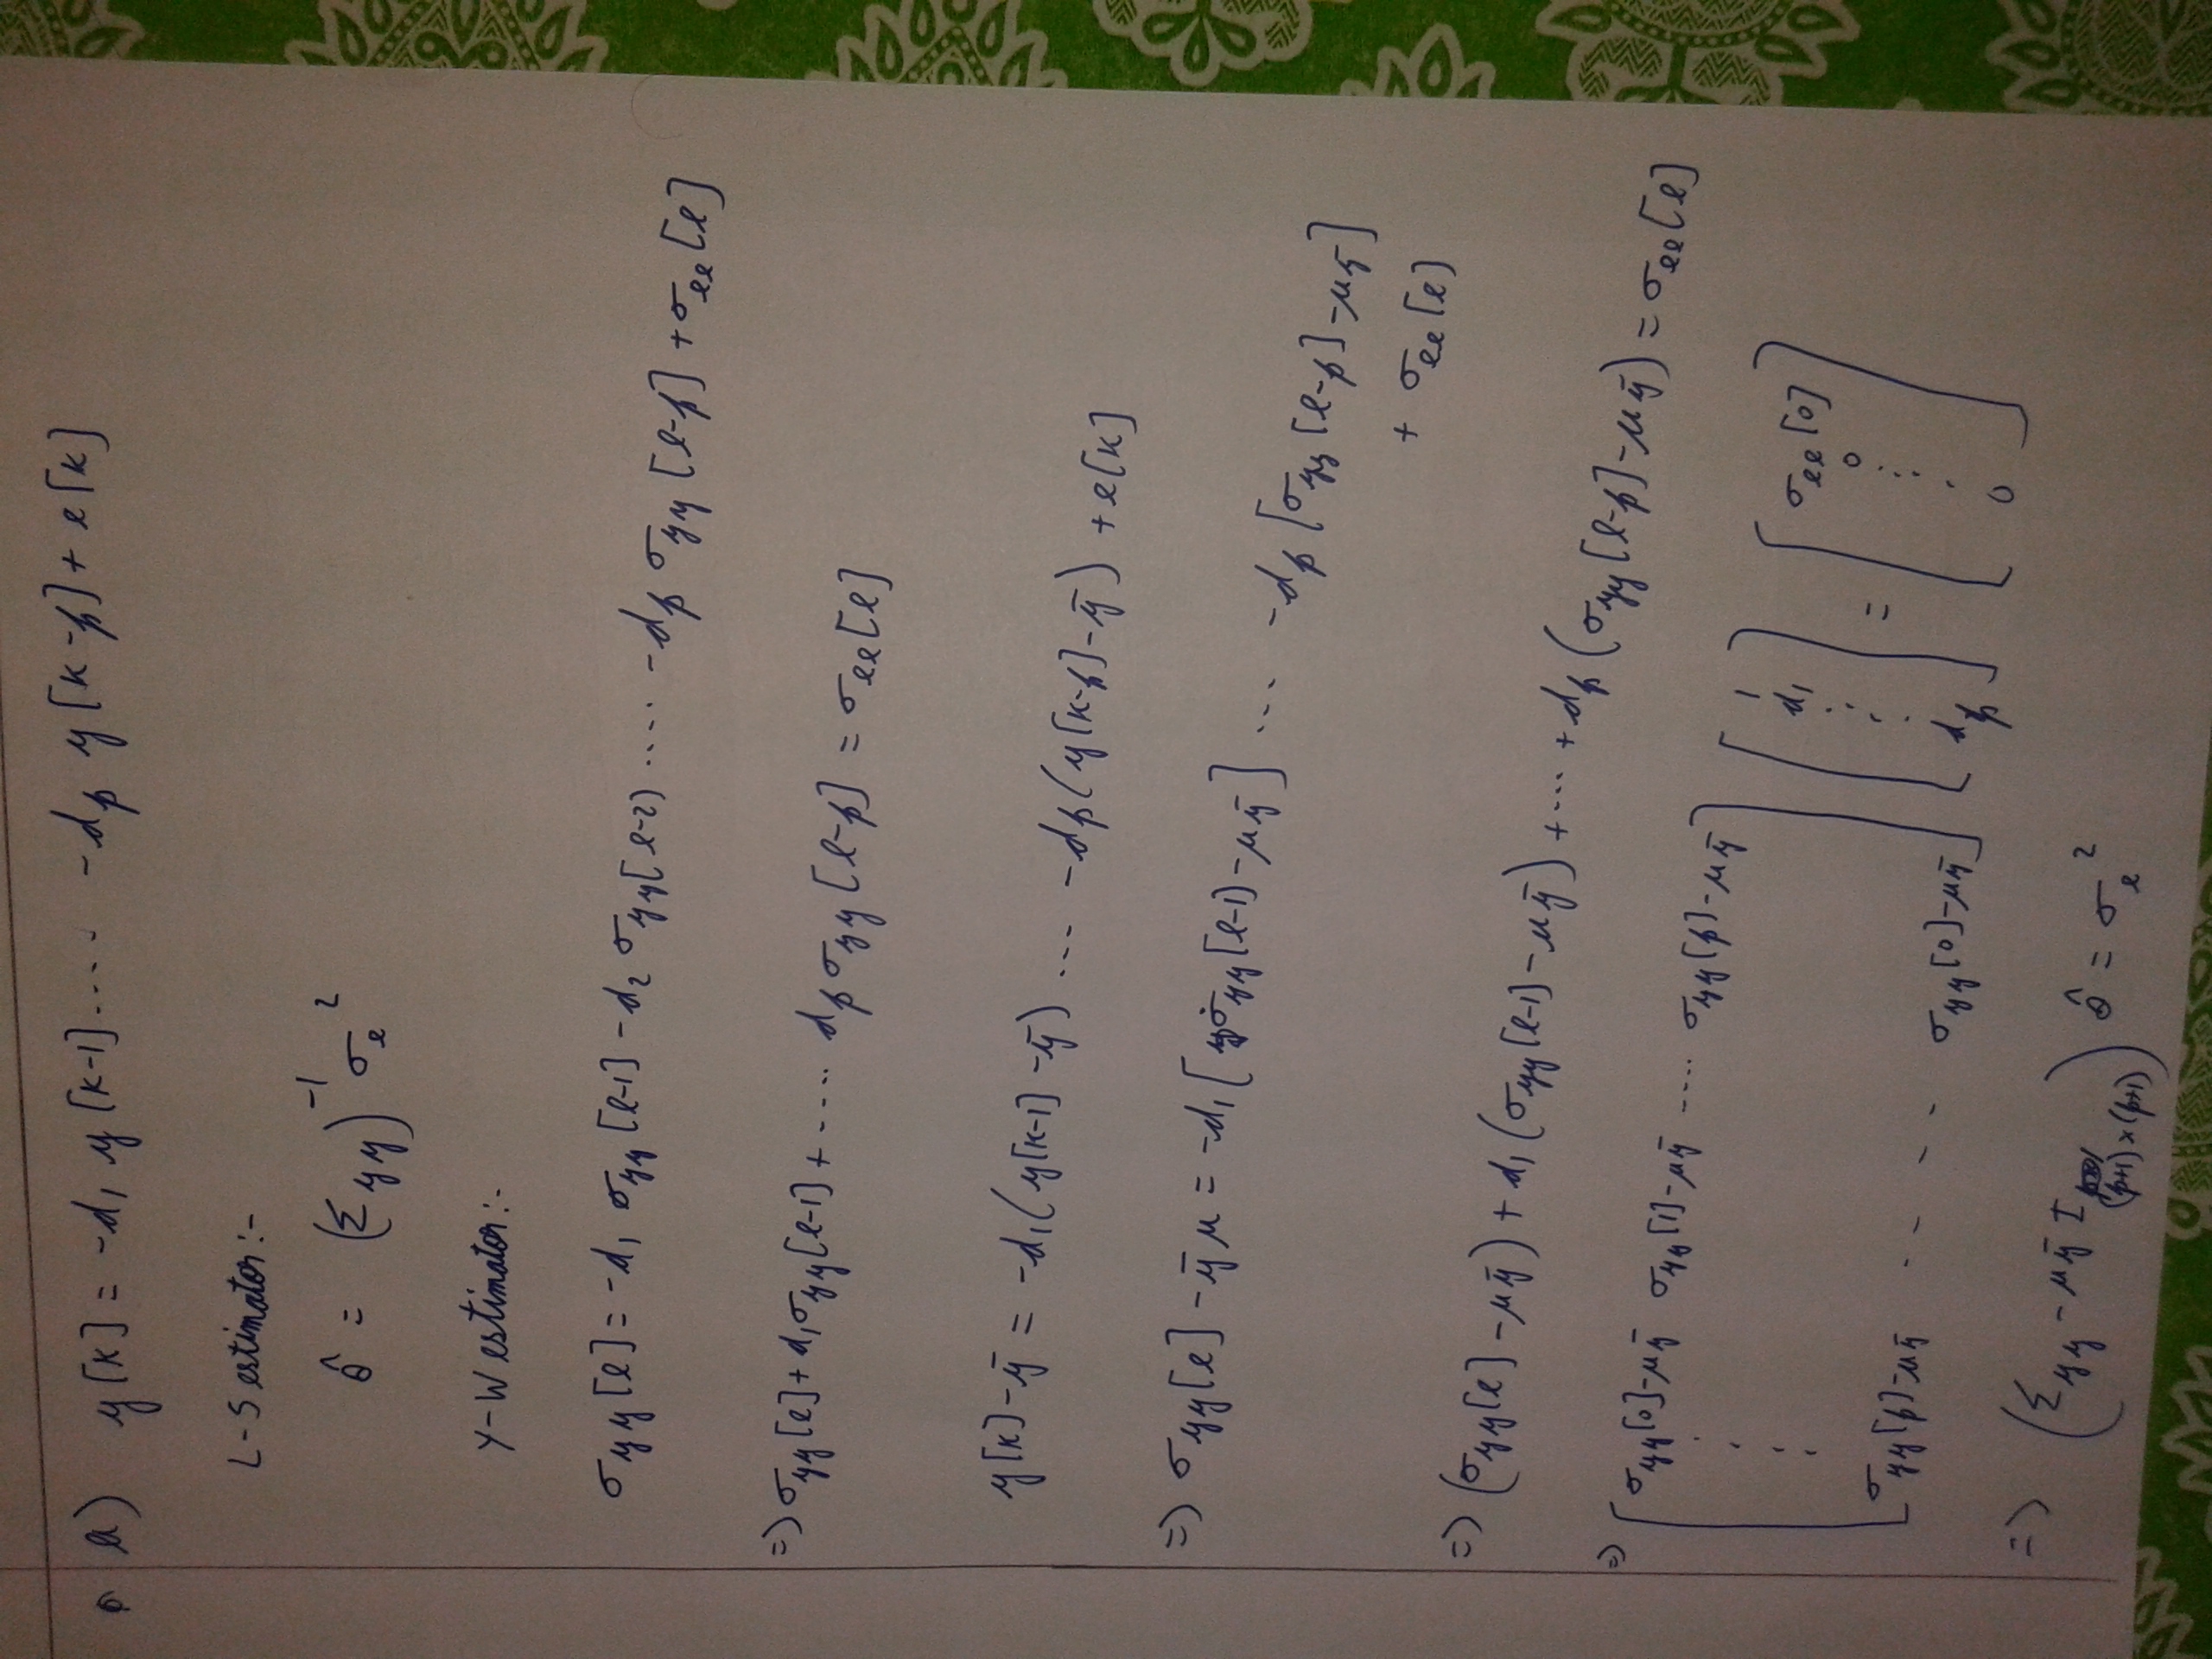 a) y[k] = -d₁ y[k-1] ..... -dₚ y[k-p] + e[k]
L-S estimator:-
θ̂ = (Σyy)⁻¹ σₑ²
Y-W estimator:-
σyy[l] = -d₁ σyy[l-1] - d₂ σyy[l-2) ..... -dₚ σyy[l-p] + σee[l]
=) σyy[l] + d₁σyy[l-1] + .... dₚ σyy[l-p] = σee[l]
y[k] - ȳ = -d₁(y[k-1] - ȳ) ... -dₚ(y[k-p] - ȳ) + e[k]
=) σyy[l] - ȳμ = -d₁[σyy[l-1) - μȳ] ... -dₚ[σyy[l-p] - μȳ]
+ σee[l)
=) (σyy[l] - μȳ) + d₁(σyy[l-1) - μȳ) + .... + dₚ(σyy[l-p] - μȳ) = σee[l]
=) [σyy[0] - μȳ σyy[1] - μȳ .... σyy[p] - μȳ] [1 = [σee[0]
⋮ d₁ 0
⋮ ⋮ ⋮
σyy[p] - μȳ - - - - σyy[0] - μȳ] dₚ] 0]
=) (Σyy - μȳ I (p+1)×(p+1)) θ̂ = σₑ²